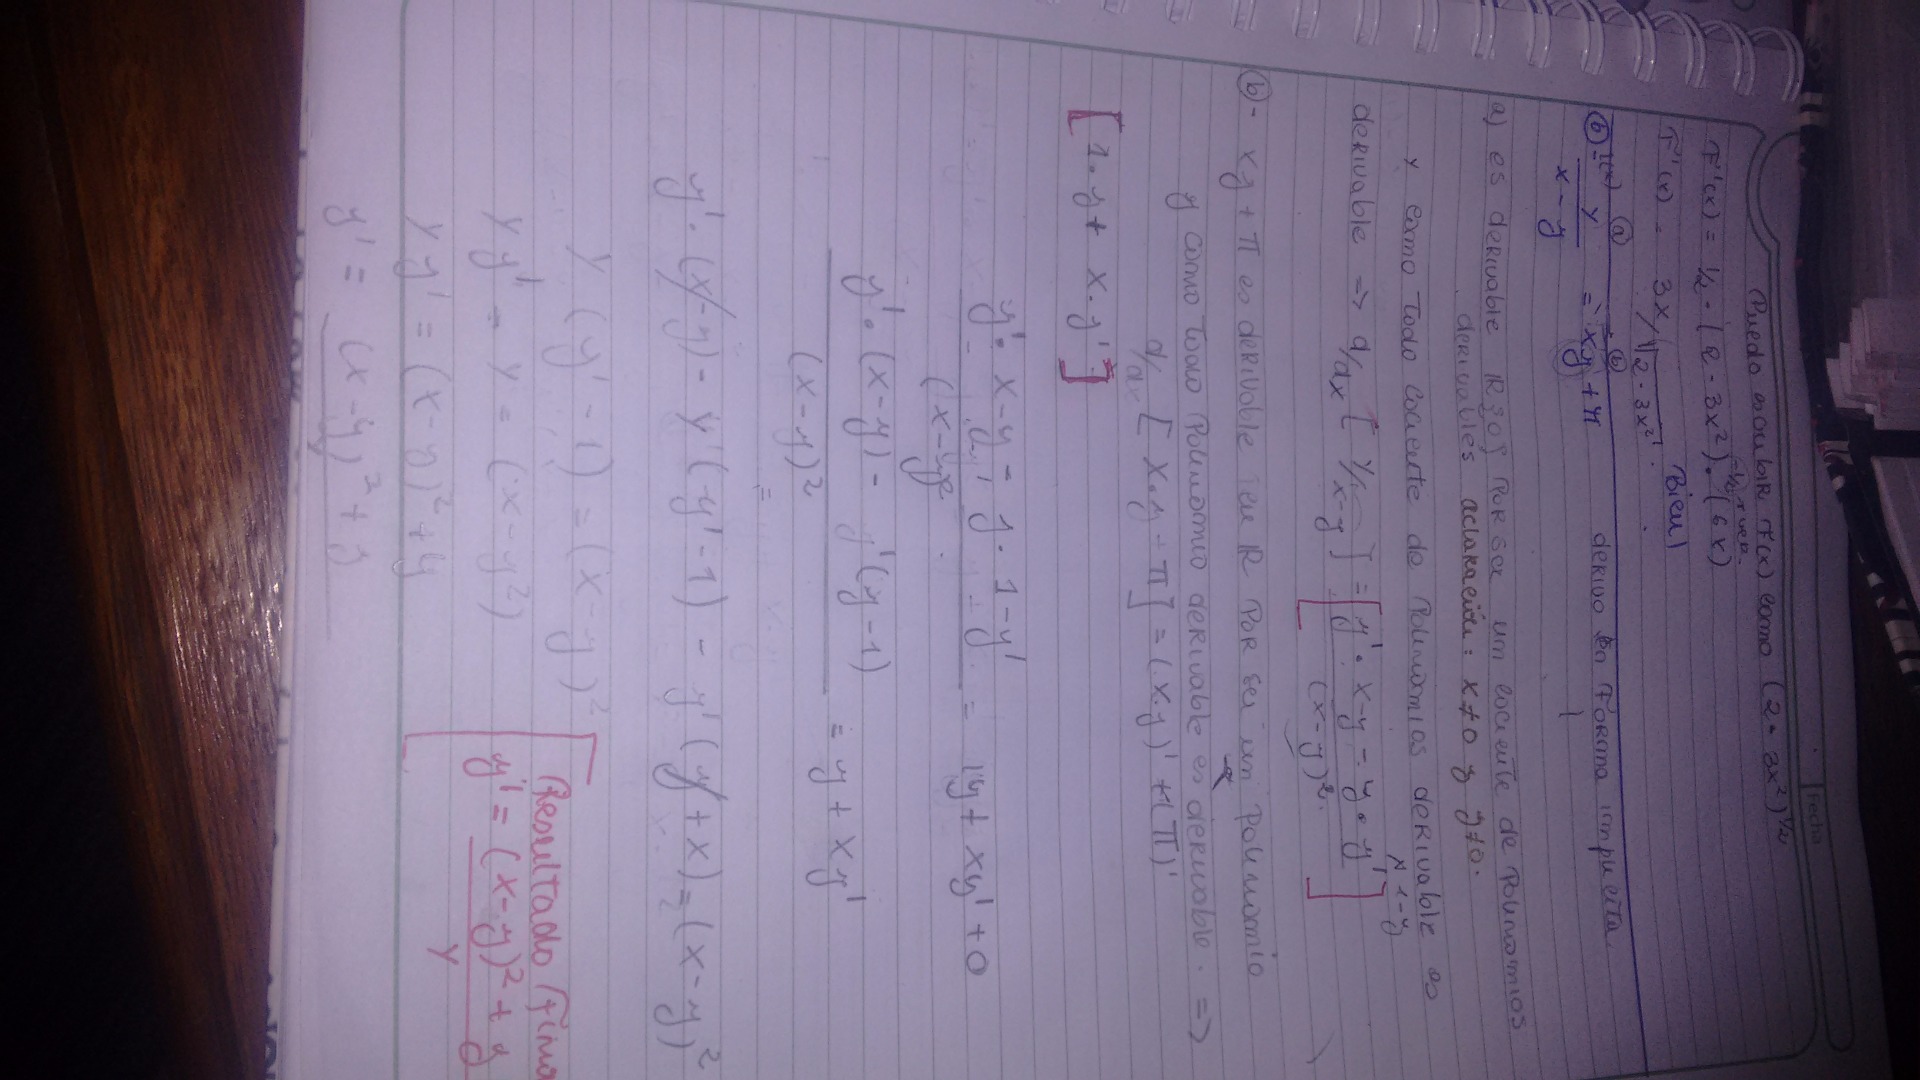 Fecha
Puedo escribir F(x) como (2 - 3x²)^1/2
F'(x) = 1/2 · (2 - 3x²)^-1/2 · (6x)
F'(x) = 3x/√2-3x² . Bien!
b) y / x - y = xy + π derivo en Forma implicita
a) es derivable por ser un cociente de polinomios
derivables aclaración: x≠0 y y≠0.
y como todo cociente de Polinomios derivable es
derivable => d/dx [ y / x-y ] = [ y' · x-y - y · y' / (x-y)² ]
b) - xy + π es derivable en R por ser un polinomio
y como todo Polinomio derivable es derivable. =>
d/dx [ x·y + π ] = (x·y)' + (π)'
[ 1·y + x·y' ]
y' · x-y = y · 1-y' / (x-y)² = 1y + xy' + 0
y' · (x-y) - y'(y-1) / (x-y)² = y + xy'
y' · (x-y) - y'(-y'-1) - y'(y + x) = (x-y)²
y (y' - 1) = (x-y)²
y y' = y = (x-y²)
y y' = (x-y)² + y
y' = (x-y)² + y
Resultado Final
y' = (x-y)² + y / y